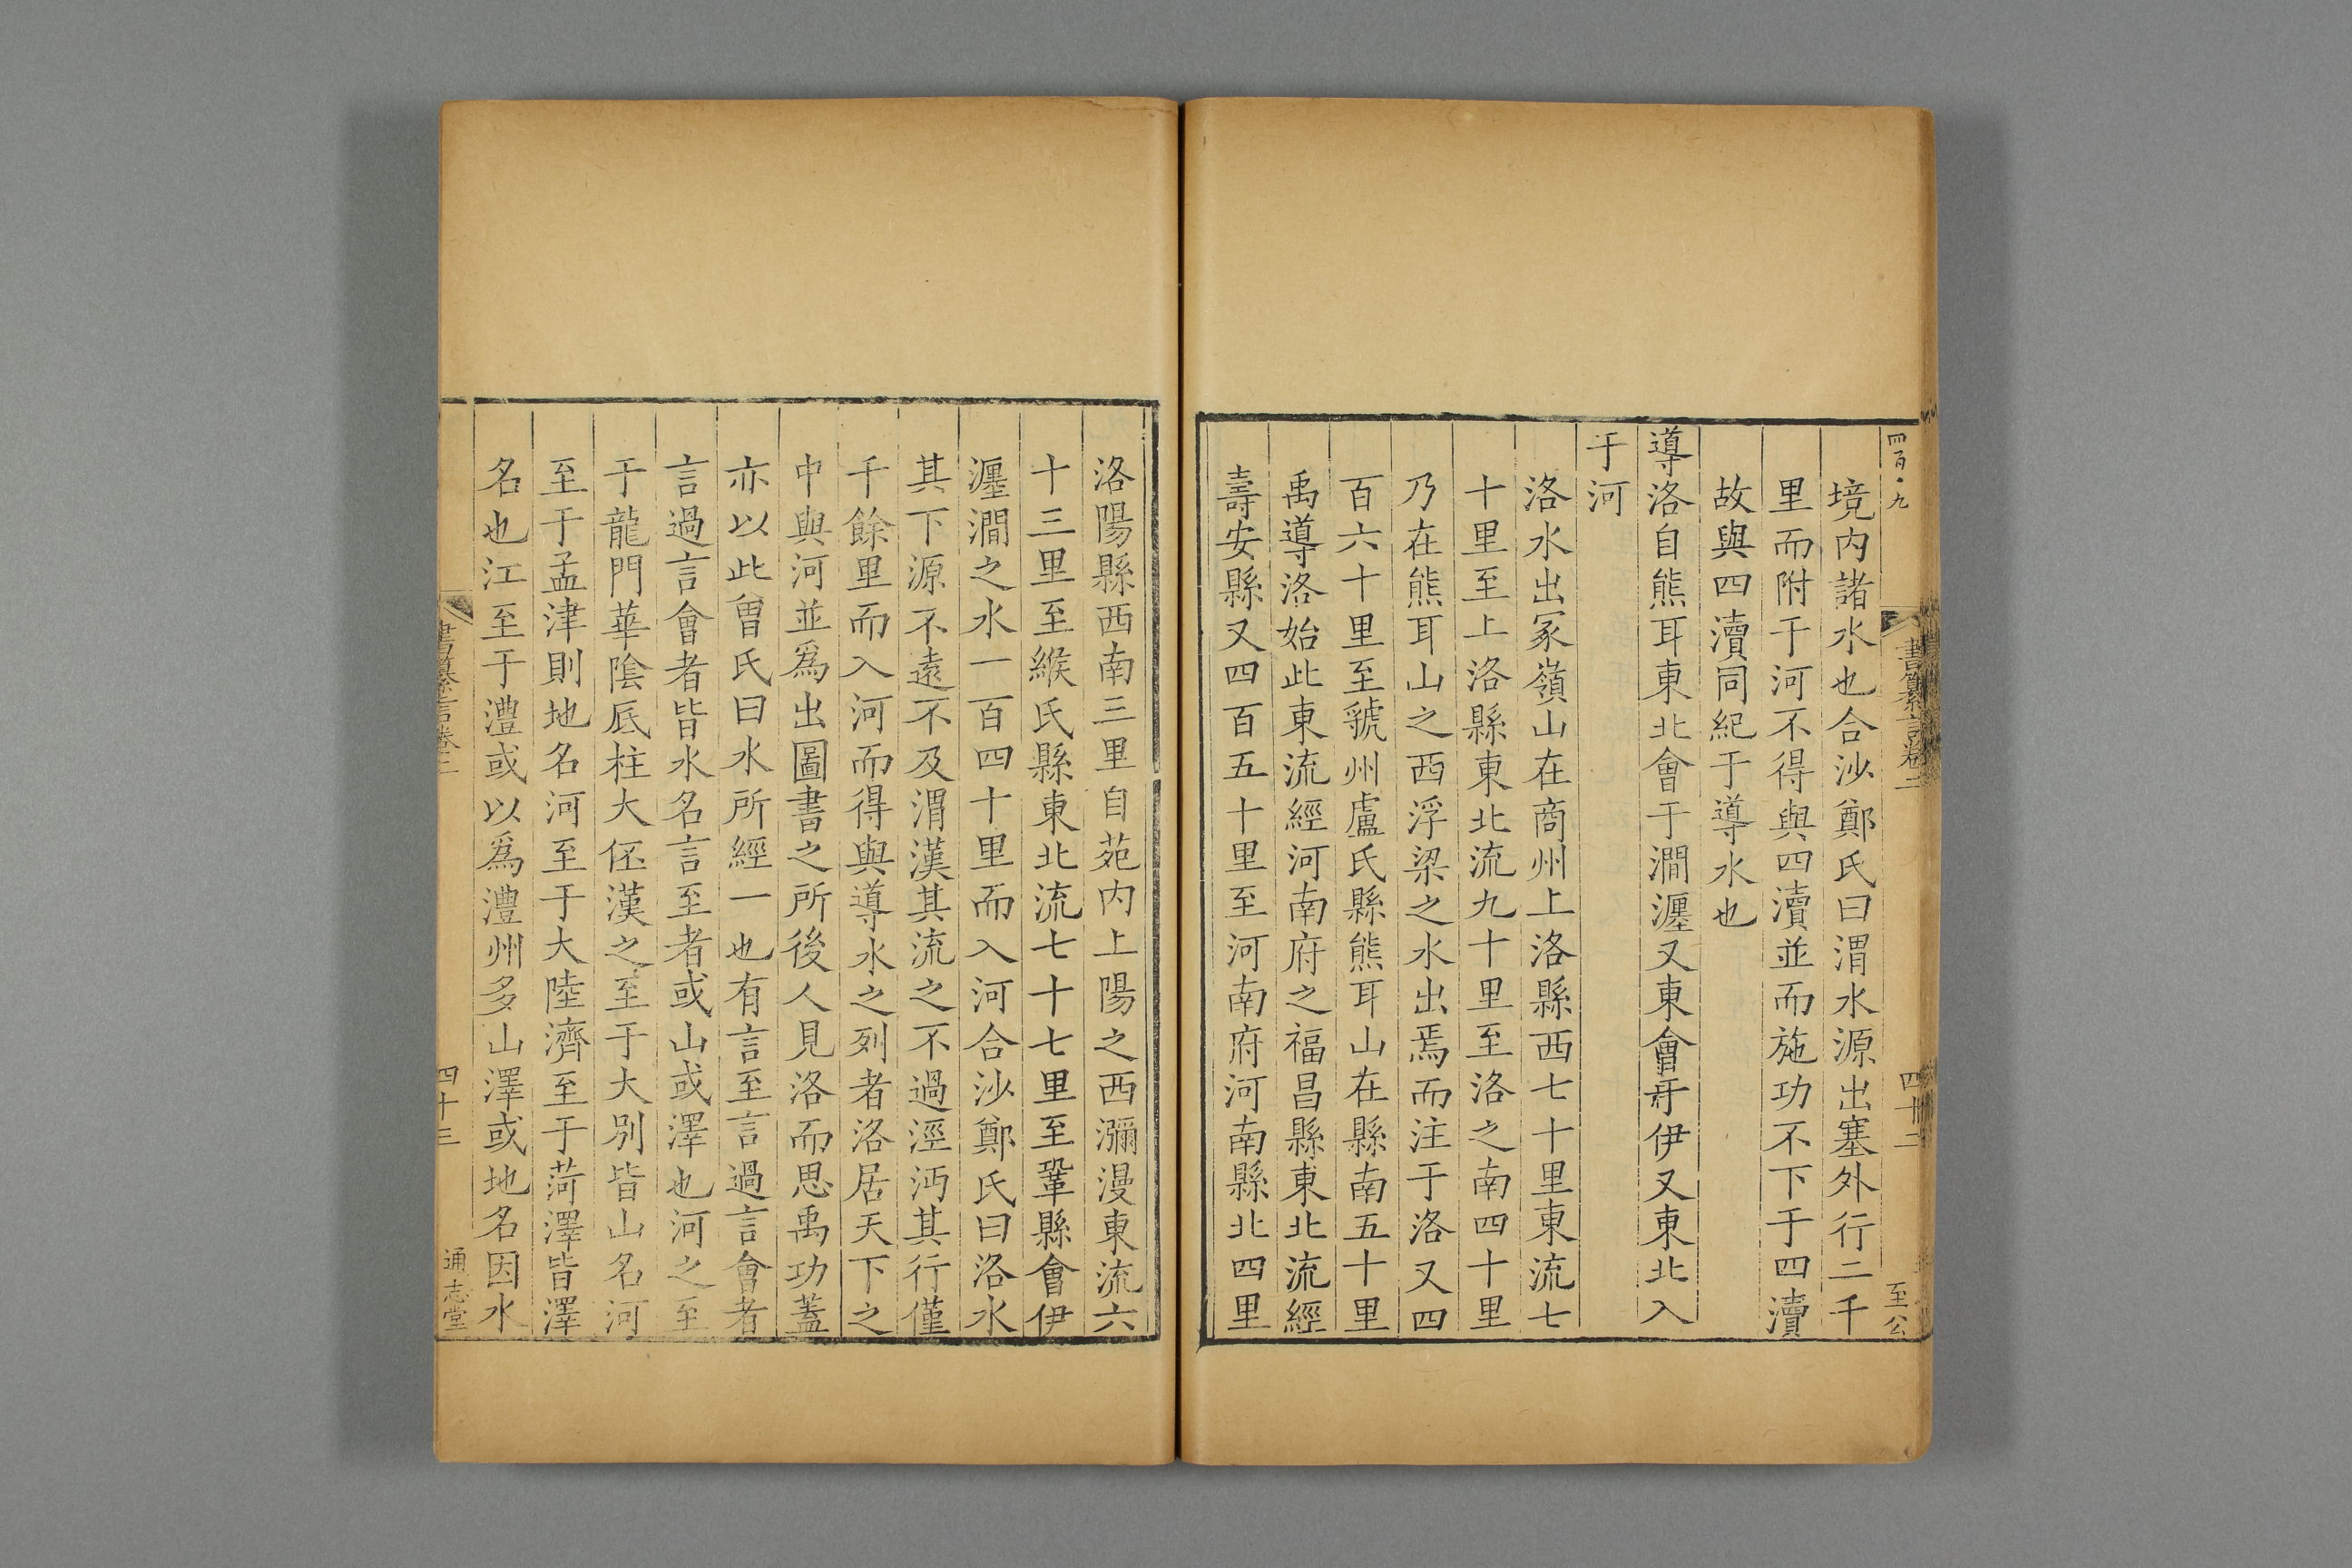 四百·九
書纂言卷二
四十二
至公
境內諸水也合沙鄭氏曰渭水源出塞外行二千
里而附于河不得與四瀆並而施功不下于四瀆
故與四瀆同紀于導水也
導洛自熊耳東北會于澗瀍又東會于伊又東北入
于河
洛水出冢嶺山在商州上洛縣西七十里東流七
十里至上洛縣東北流九十里至洛之南四十里
乃在熊耳山之西浮梁之水出焉而注于洛又四
百六十里至虢州盧氏縣熊耳山在縣南五十里
禹導洛始此東流經河南府之福昌縣東北流經
壽安縣又四百五十里至河南府河南縣北四里
洛陽縣西南三里自苑內上陽之西瀰漫東流六
十三里至緱氏縣東北流七十七里至鞏縣會伊
瀍澗之水一百四十里而入河合沙鄭氏曰洛水
其下源不遠不及渭漢其流之不過涇沔其行僅
千餘里而入河而得與導水之列者洛居天下之
中與河並爲出圖書之所後人見洛而思禹功蓋
亦以此曾氏曰水所經一也有言至言過言會者
言過言會者皆水名言至者或山或澤也河之至
于龍門華陰厎柱大伾漢之至于大別皆山名河
至于孟津則地名河至于大陸濟至于菏澤皆澤
名也江至于澧或以爲澧州多山澤或地名因水
書纂言卷二
四十三
通志堂